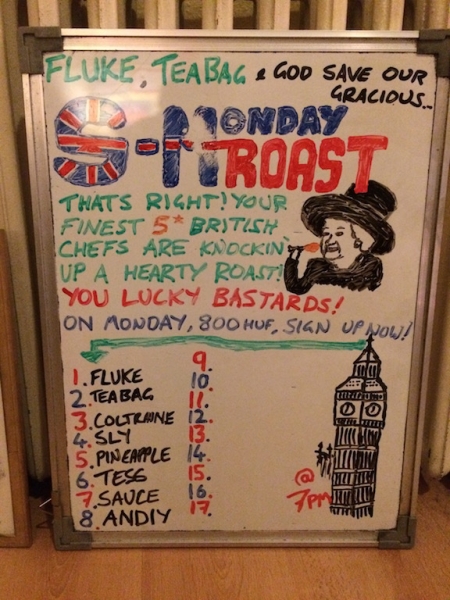 FLUKE, TEABAG & GOD SAVE OUR
GRACIOUS...
S-MONDAY
ROAST
THATS RIGHT! YOUR
FINEST 5* BRITISH
CHEFS ARE KNOCKIN'
UP A HEARTY ROAST!
YOU LUCKY BASTARDS!
ON MONDAY, 800HUF, SIGN UP NOW!
1. FLUKE
2. TEABAG
3. COLTRAINE
4. SLY
5. PINEAPPLE
6. TESS
7. SAUCE
8. ANDIY
9.
10.
11.
12.
13.
14.
15.
16.
17.
@
7PM